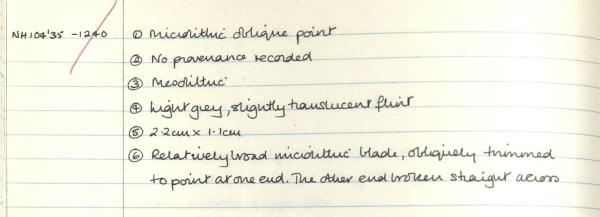 NH104'35 - 1240 ① Microlithic oblique point
② No provenance recorded
③ Mesolithic
④ Light grey, slightly translucent flint
⑤ 2.2cm x 1.1cm
⑥ Relatively broad microlithic blade, obliquely trimmed
to point at one end. The other end broken straight across